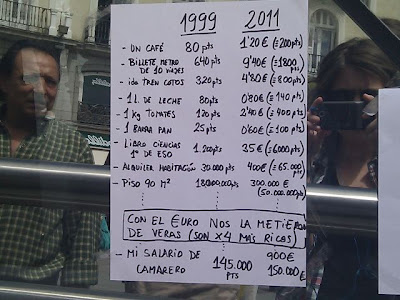 1999 2011
- UN CAFÉ 80 pts 1'20 € (= 200 pts)
- BILLETE METRO DE 10 VIAJES 640 pts 9'40 € (= 1800
- ida TREN COTOS 320 pts 4'80 € (= 800 pts)
- 1 L. DE LECHE 80 pts 0'80 € (= 140 pts)
- 1 kg TOMATES 120 pts 2'40 € (= 400 pts)
- 1 BARRA PAN 25 pts 0'60 € (= 100 pts)
- LIBRO CIENCIAS 1º DE ESO 1.200 pts 35 € (= 6000 pts)
- ALQUILER HABITACIÓN 30.000 pts 400 € (= 65.000 pts)
- PISO 90 M² pts 300.000 €
(50.000.000 pts)
CON EL €URO NOS LA METIERON
DE VERAS (SON x4 MÁS RICOS)
- MI SALARIO DE CAMARERO 145.000 PTS 900 €
150.000